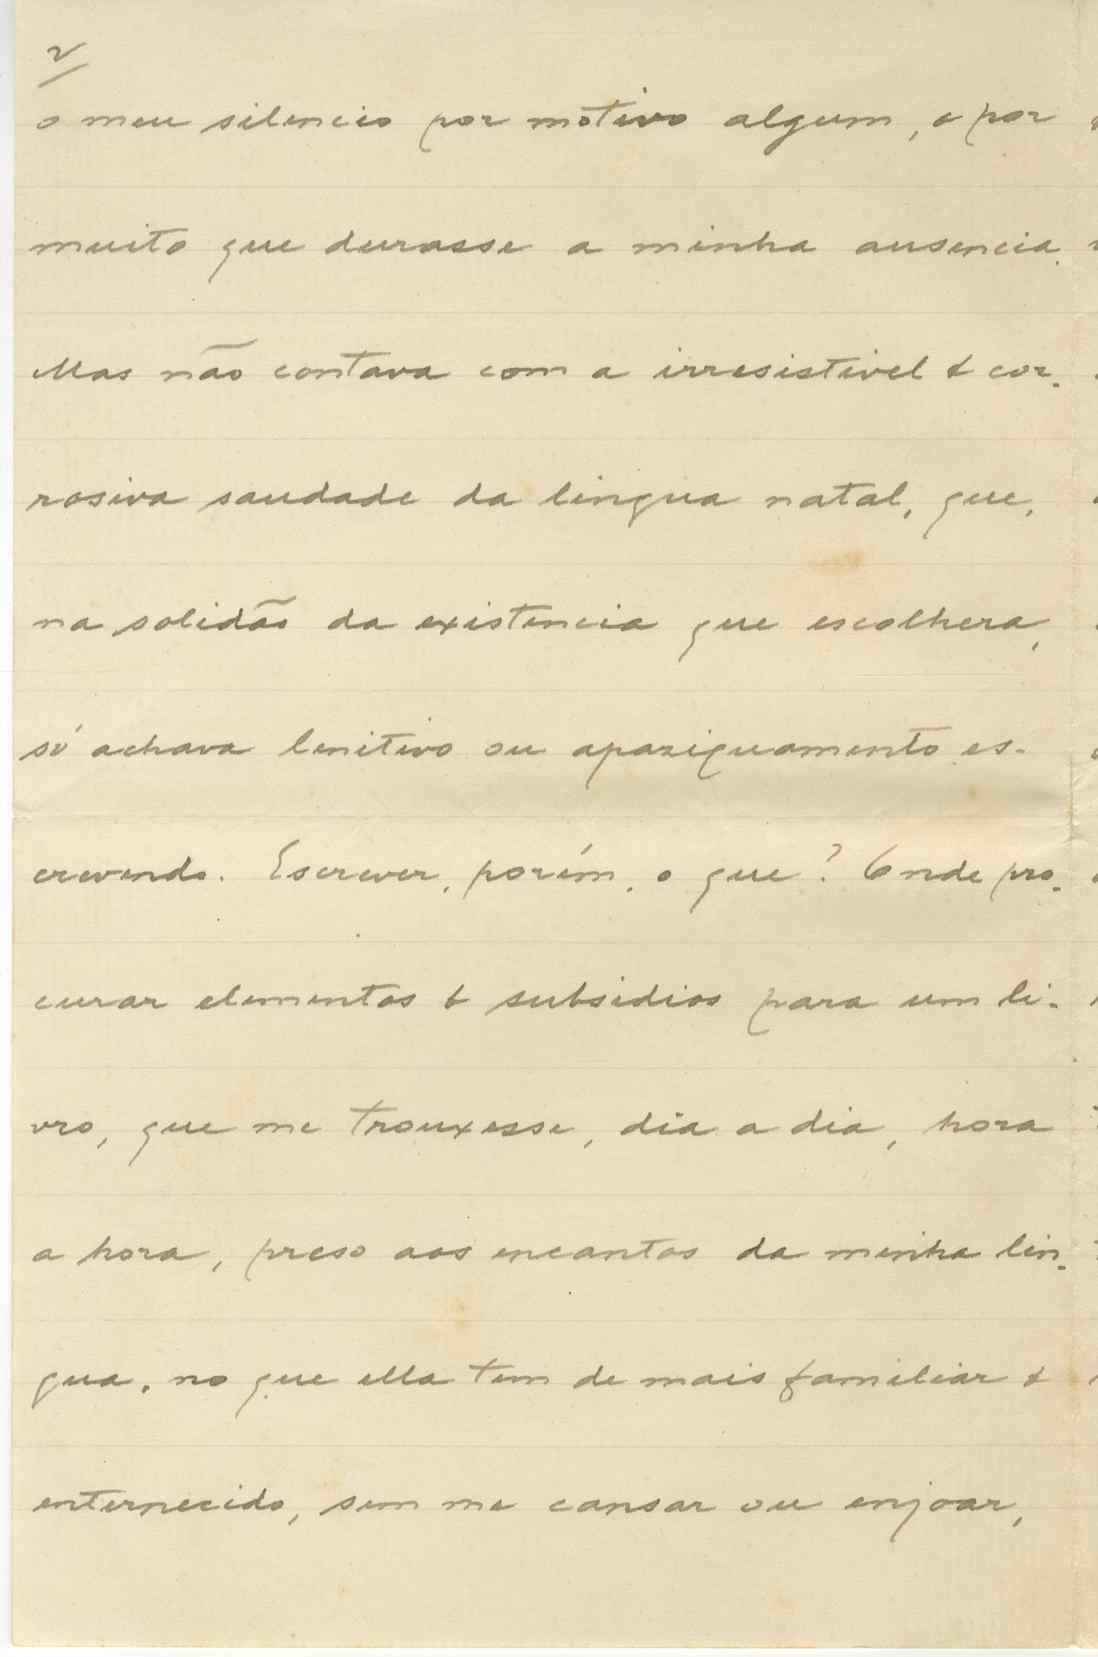 2
o meu silencio por motivo algum, e por
muito que durasse a minha ausencia.
Mas não contava com a irresistivel & cor-
rosiva saudade da lingua natal, que,
na solidão da existencia que escolhera,
só achava lenitivo ou apaziguamento es-
crevendo. Escrever, porém, o que? Onde pro-
curar elementos & subsidios para um li-
vro, que me trouxesse, dia a dia, hora
a hora, preso aos encantos da minha lin-
gua, no que ella tem de mais familiar &
enternecido, sem me cansar ou enjoar,